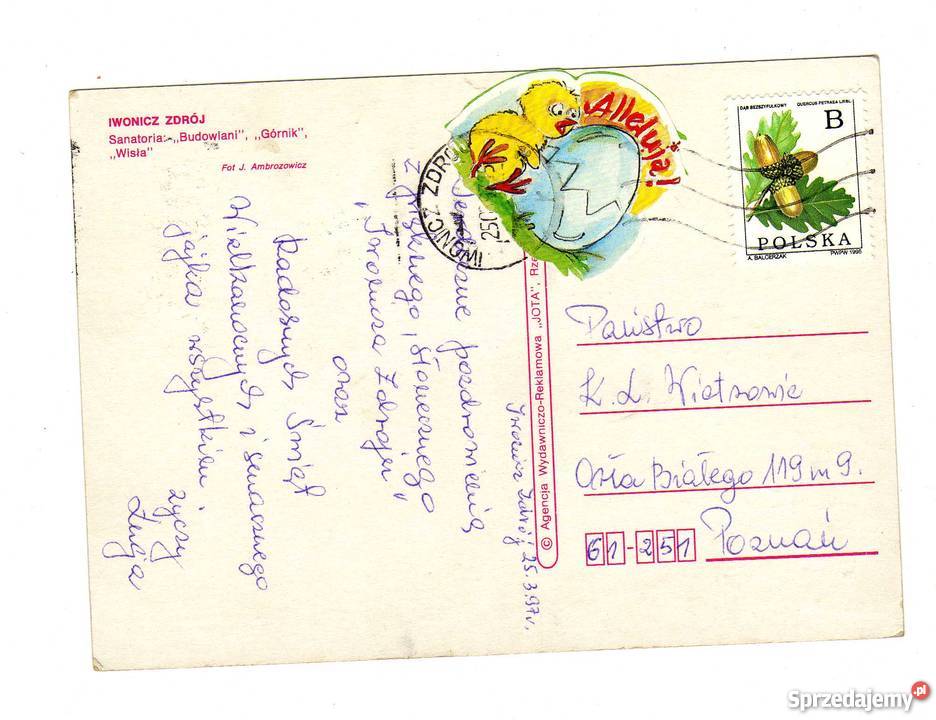 IWONICZ ZDRÓJ
Sanatoria: „Budowlani”, „Górnik”,
„Wisła”
Fot J. Ambrozowicz
Alleluja!
IWONICZ ZDRÓJ
25.0
DĄB BEZSZYPUŁKOWY QUERCUS PETRAEA LIEBL.
B
POLSKA
A. BALCERZAK PWPW 1995
Serdeczne pozdrowienia
z pięknego, słonecznego
"Iwonicza Zdroju"
oraz
Radosnych Świąt
Wielkanocnych i smacznego
jajka wszystkim
życzy
Iwonicz Zdrój, 25.3.97r.
© Agencja Wydawniczo-Reklamowa „JOTA”, Rze
Państwo
K. L. Wietrowie
Orła Białego 119 m 9.
61-251 Poznań
Sprzedajemy.pl